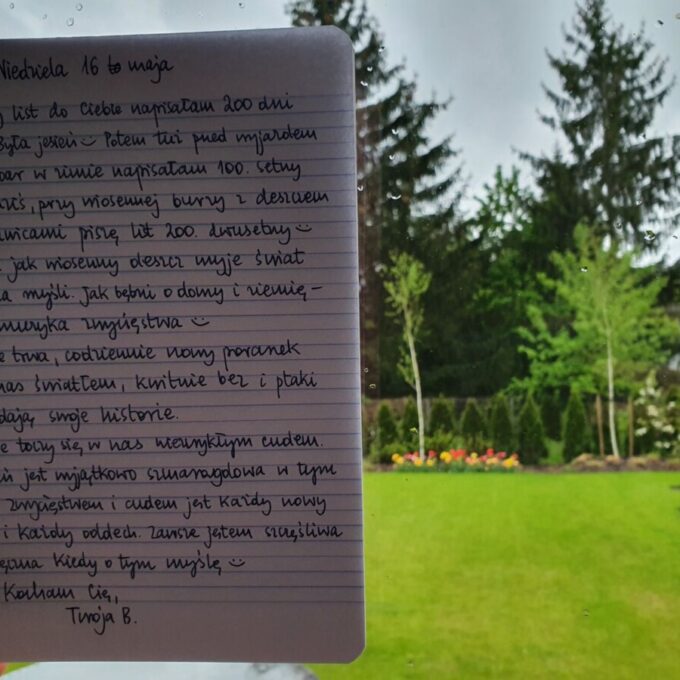 Niedziela 16 maja
list do Ciebie napisałam 200 dni
Była jesień Potem tuż przed wyjazdem
w zimie napisałam 100. setny
, przy wiosennej burzy z deszczem
piszę list 200. dwusetny
jak wiosenny deszcz myje świat
myśli. Jak bębni o domy i ziemię –
muzyka zwycięstwa
trwa, codziennie nowy poranek
nas światłem, kwitnie bez i ptaki
swoje historie.
toczy się w nas niezwykłym cudem.
jest wyjątkowo szmaragdowa w tym
zwycięstwem i cudem jest każdy nowy
i każdy oddech. Zawsze jestem szczęśliwa
kiedy o tym myślę
Kocham Cię,
Twoja B.